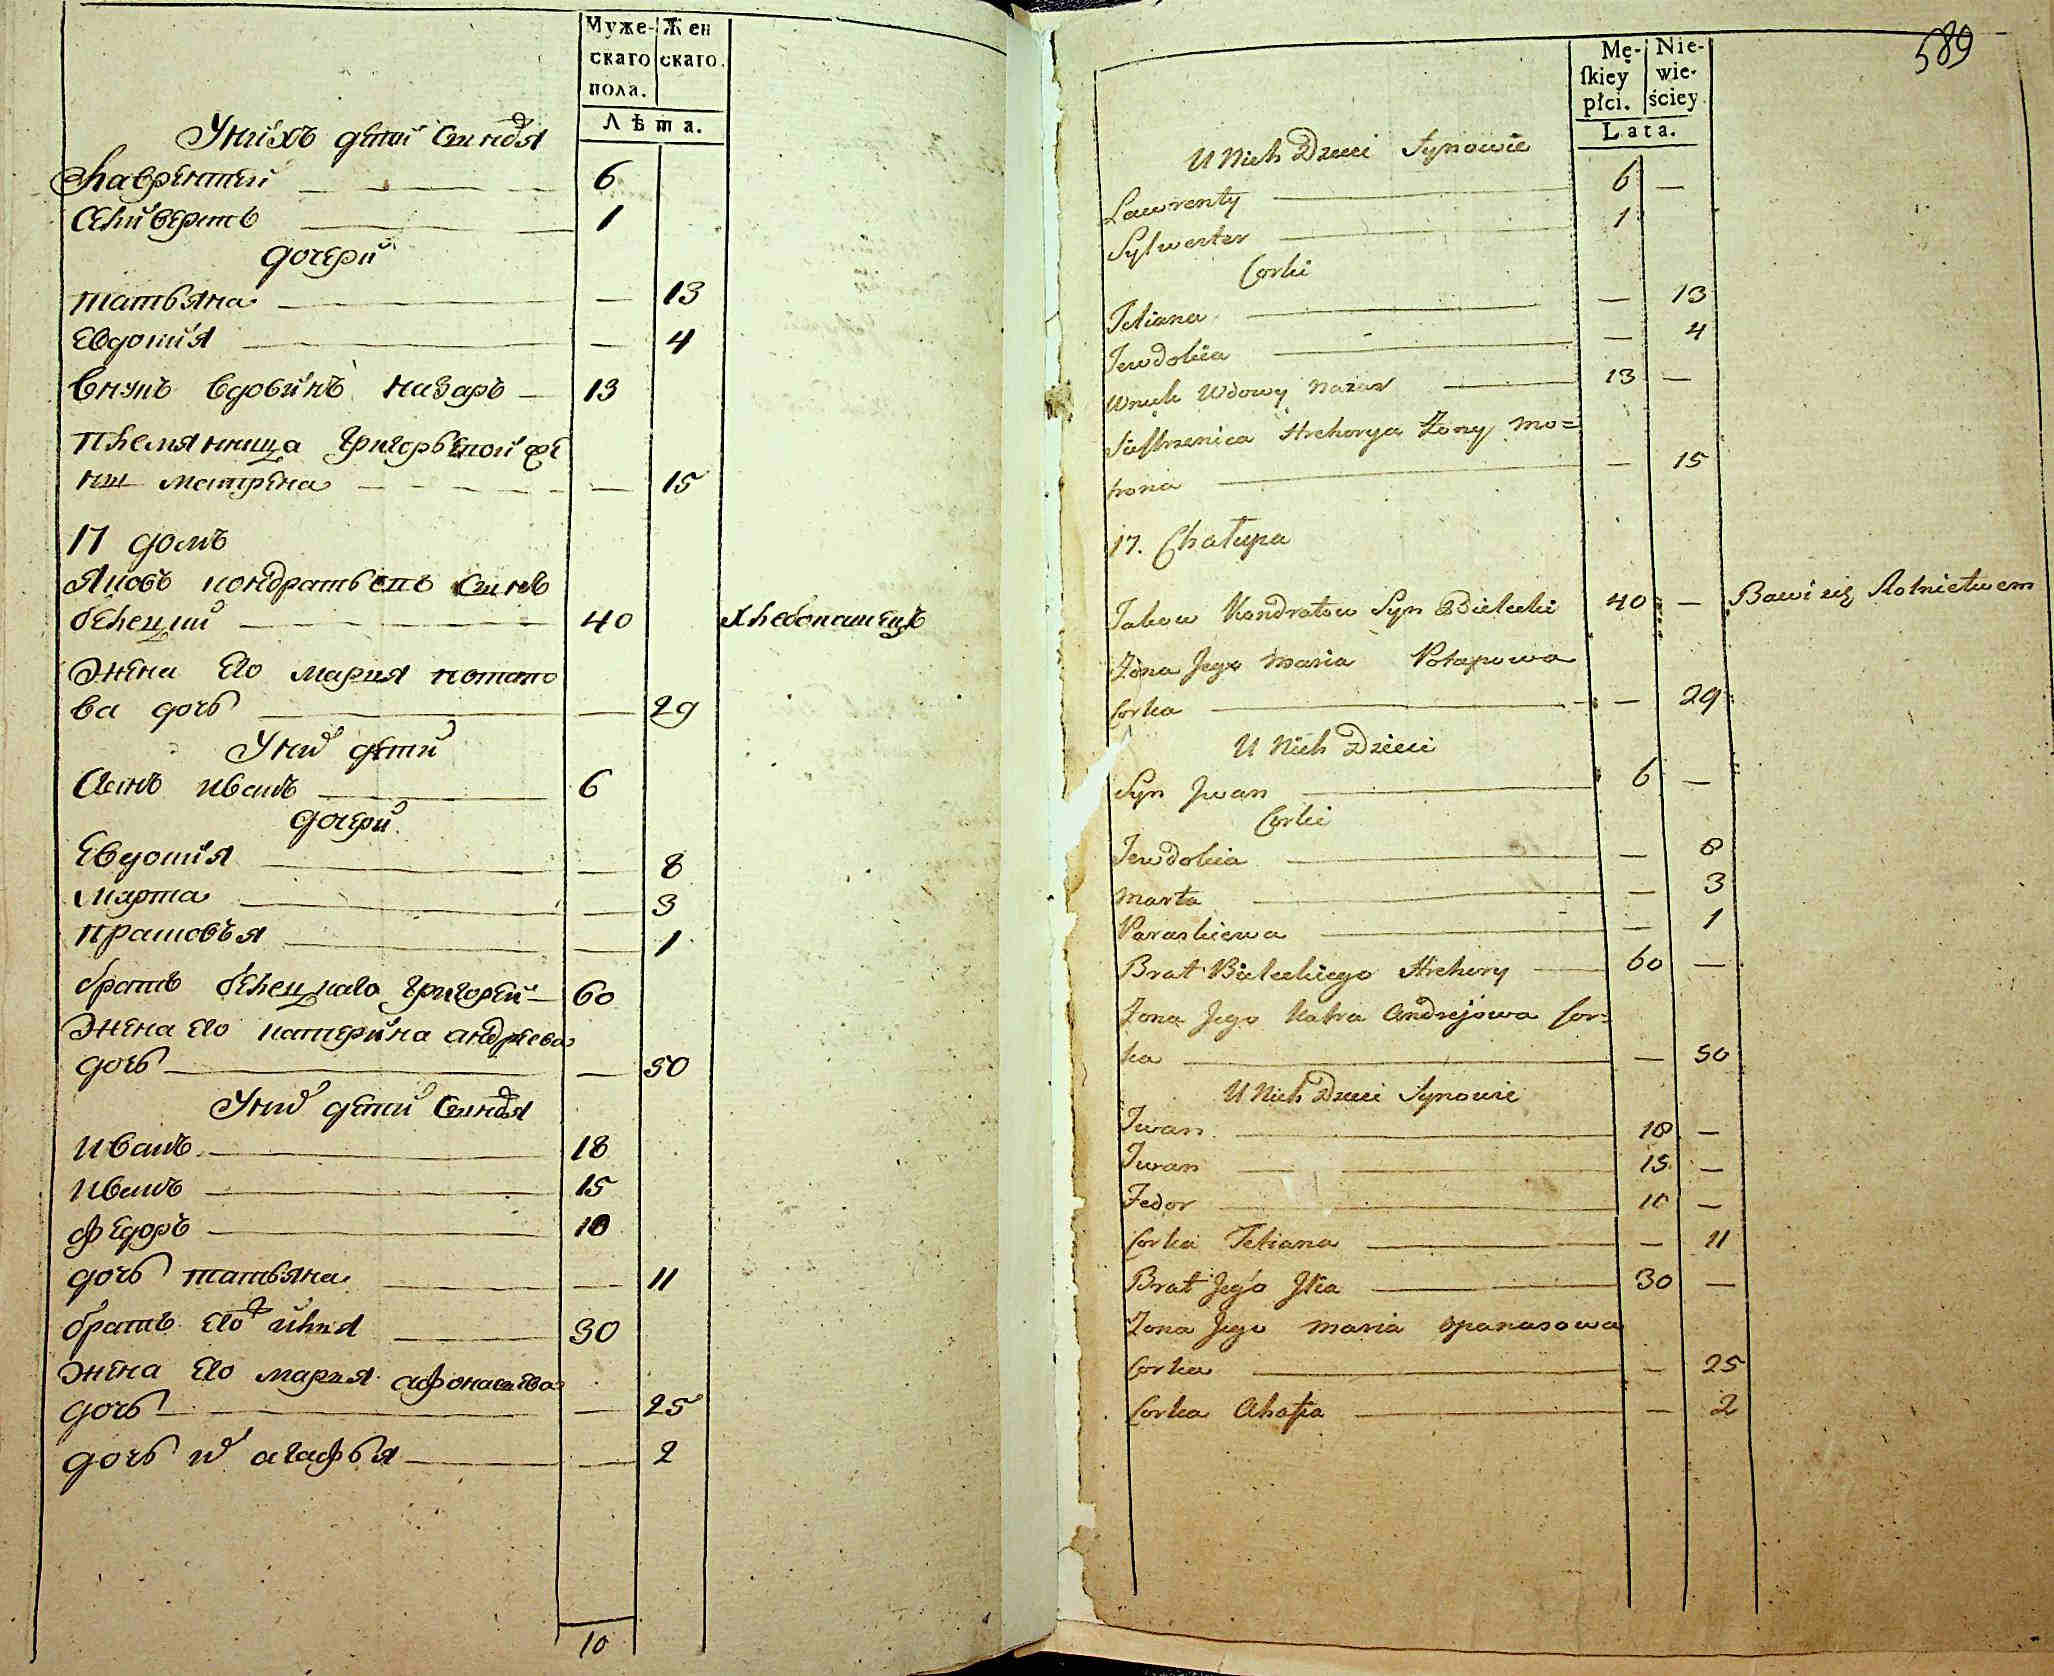 Муже-
скаго
пола.
Жен
скаго.
Лѣта.
У нихъ дети синовя
Лаврентей — 6
Селиверстъ — 1
дочери
татьяна — — 13
Евдокия — — 4
внукъ вдовинъ назаръ — 13
племянница григорьевой же
ни матрена — — 15
17 домъ
Яковъ кондратьевъ синъ
белецкий — 40 хлебопашецъ
жена его мария потапо
ва дочь — — 29
У них дети
Синъ иванъ — 6
дочери
Евдокия — — 8
Марта — — 3
прасковья — — 1
братъ белецкаго григорей — 60
жена его катерина андреева
дочь — — 50
У них дети синовя
иванъ — 18
иванъ — 15
федоръ — 10
дочь татьяна — — 11
братъ его илия — 30
жена его мария афонасиева
дочь — — 25
дочь их агафья — — 2
10
589
Mę-
ſkiey
płci.
Nie-
wie-
ściey
Lata.
U Nich Dzieci Synowie
Lawrenty — 6 —
Sylwester — 1
Corki
Tetiana — — 13
Jewdokia — — 4
Wnuk Wdowy Nazar — 13 —
Siestrzenica Hrehorya Żony Mo=
trona — — 15
17. Chałupa
Jakow Kondratow Syn Bielecki 40 — Bawi się Rolnictwem
Żona Jego Maria Potapowa
Corka — — 29
U Nich Dzieci
Syn Jwan — 6 —
Corki
Jewdokia — — 8
Marta — — 3
Paraskiewa — — 1
Brat Bieleckiego Hrehory — 60 —
Żona Jego Katra Andrejowa Cor=
ka — — 50
U Nich Dzieci Synowie
Jwan — 18 —
Jwan — 15 —
Fedor — 10 —
Corka Tetiana — — 11
Brat Jego Jlia — 30 —
Żona Jego Maria Opanasowa
Corka — — 25
Corka Ahafia — — 2